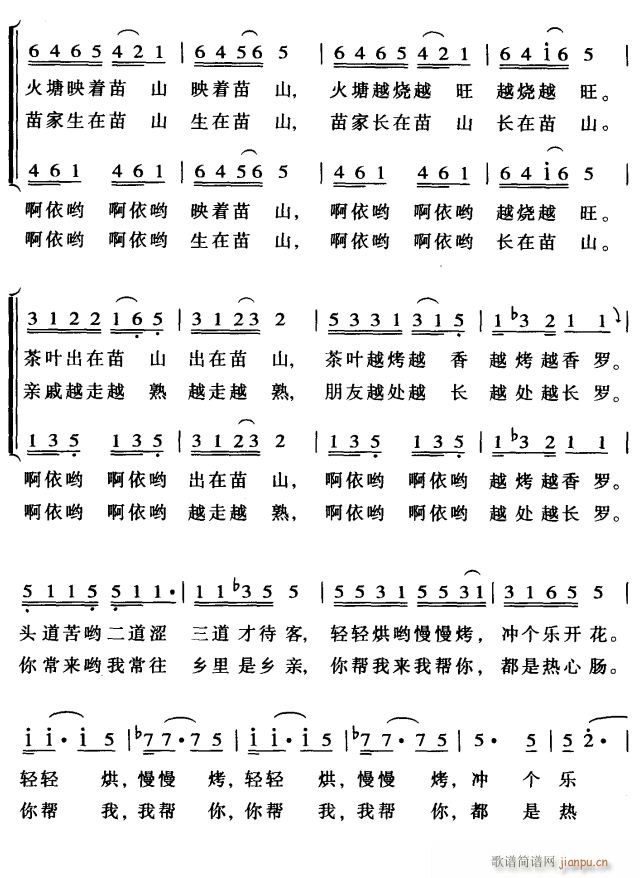 6465 421 | 6456 5 | 6465 421 | 64i6 5 |
火塘映着苗 山 映着苗 山, 火塘越烧越 旺 越烧越 旺。
苗家生在苗 山 生在苗 山, 苗家长在苗 山 长在苗 山。
461 461 | 6456 5 | 461 461 | 64i6 5 |
啊依哟 啊依哟 映着苗 山, 啊依哟 啊依哟 越烧越 旺。
啊依哟 啊依哟 生在苗 山, 啊依哟 啊依哟 长在苗 山。
3122 165 | 3123 2 | 5331 315 | 1♭32 1 1 |
茶叶出在苗 山 出在苗 山, 茶叶越烤越 香 越烤越香罗。
亲戚越走越 熟 越走越 熟, 朋友越处越 长 越处越长罗。
135 135 | 3123 2 | 135 135 | 1♭32 1 1 |
啊依哟 啊依哟 出在苗 山, 啊依哟 啊依哟 越烤越香罗。
啊依哟 啊依哟 越走越 熟, 啊依哟 啊依哟 越处越长罗。
5115 511· | 11♭35 5 | 5531 5531 | 31655 |
头道苦哟二道涩 三道才待客, 轻轻烘哟慢慢烤, 冲个乐开花。
你常来哟我常往 乡里是乡亲, 你帮我来我帮你, 都是热心肠。
i i· i 5 | ♭7 7· 7 5 | i i· i 5 | ♭7 7· 7 5 | 5· 5 | 5 2·
轻轻 烘, 慢慢 烤, 轻轻 烘, 慢慢 烤, 冲 个 乐
你帮 我, 我帮 你, 你帮 我, 我帮 你, 都 是 热
歌谱简谱网 jianpu.cn